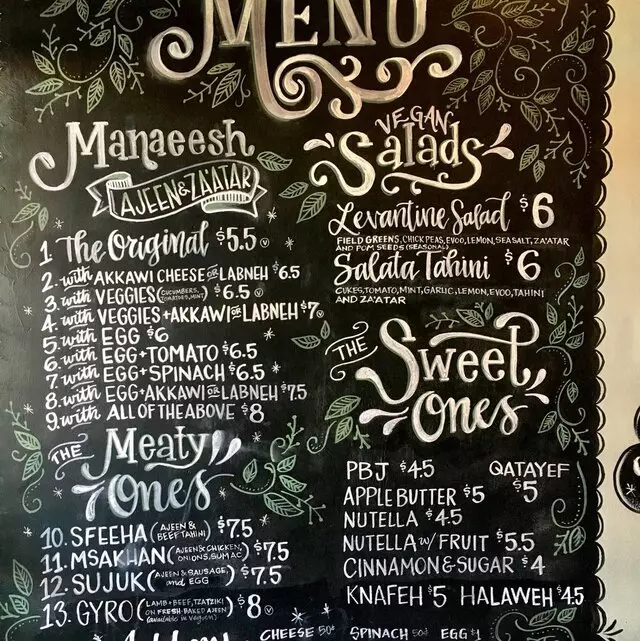 MENU
Manaeesh
AJEEN & ZA'ATAR
1 The Original $5.5 V
2. with AKKAWI CHEESE OR LABNEH $6.5
3. with VEGGIES (CUCUMBERS, TOMATOES, MINT) $6.5 V
4. with VEGGIES + AKKAWI OR LABNEH $7
5. with EGG $6
6. with EGG + TOMATO $6.5
7. with EGG + SPINACH $6.5
8. with EGG + AKKAWI OR LABNEH $7.5
9. with ALL OF THE ABOVE $8
THE Meaty Ones
10. SFEEHA (AJEEN & BEEF TAHINI) $7.5
11. MSAKHAN (AJEEN & CHICKEN, ONIONS, SUMAC) $7.5
12. SUJUK (AJEEN & SAUSAGE and EGG) $7.5
13. GYRO (LAMB + BEEF, TZATZIKI ON FRESH BAKED AJEEN (available in vegan)) $8 V
VEGAN
Salads
Levantine Salad $6
FIELD GREENS, CHICKPEAS, EVOO, LEMON, SEA SALT, ZA'ATAR
AND POM SEEDS (SEASONAL)
Salata Tahini $6
CUKES, TOMATO, MINT, GARLIC, LEMON, EVOO, TAHINI
AND ZA'ATAR
THE Sweet
Ones
PBJ $4.5 QATAYEF $5
APPLE BUTTER $5
NUTELLA $4.5
NUTELLA W/ FRUIT $5.5
CINNAMON & SUGAR $4
KNAFEH $5 HALAWEH $4.5
CHEESE 50¢ SPINACH 50¢ EGG $1